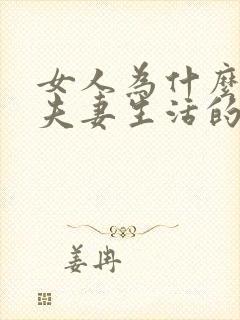 女人為什麼
夫妻生活的
姜冉